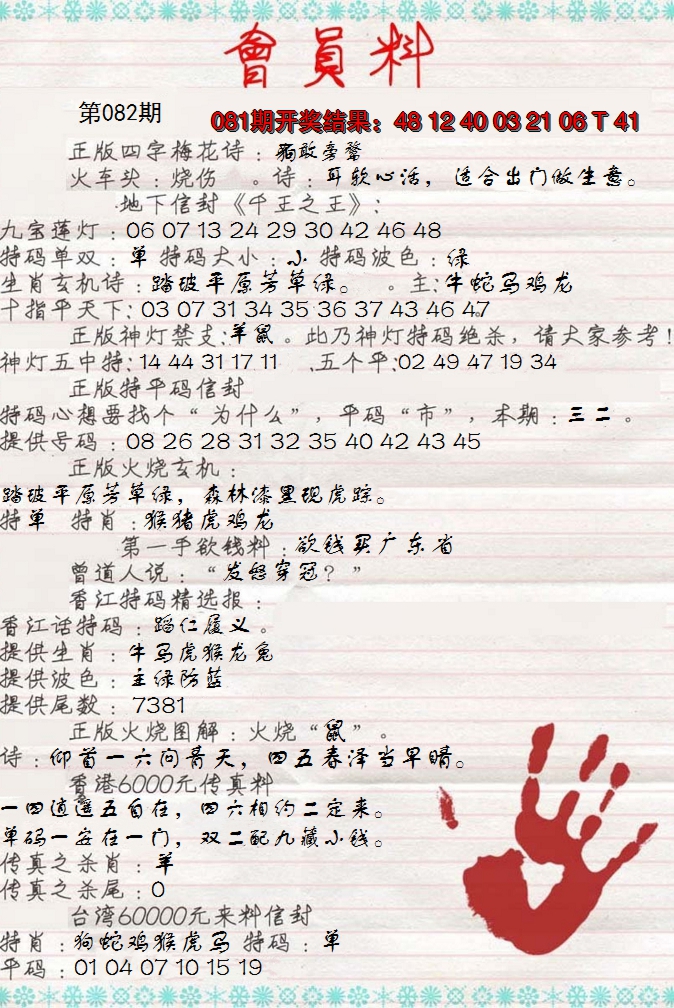 會員料
第082期
081期开奖结果：48 12 40 03 21 06 T 41
正版四字梅花诗：狗敢旁鹜
火车头：烧伤 。诗：耳软心活，适合出门做生意。
地下信封《千王之王》：
九宝莲灯：06 07 13 24 29 30 42 46 48
特码单双：单 特码大小：小 特码波色：绿
生肖玄机诗：踏破平原芳草绿。 。主：牛蛇马鸡龙
十指平天下：03 07 31 34 35 36 37 43 46 47
正版神灯禁支：羊鼠。此乃神灯特码绝杀，请大家参考！
神灯五中特：14 44 31 17 11 .五个平：02 49 47 19 34
正版特平码信封
特码心想要找个“为什么”，平码“市”，本期：三二。
提供号码：08 26 28 31 32 35 40 42 43 45
正版火烧玄机：
踏破平原芳草绿，森林漆黑现虎踪。
特单 特肖：猴猪虎鸡龙
第一手欲钱料：欲钱买广东省
曾道人说：“发怒穿冠？”
香江特码精选报：
香江话特码：蹈仁履义。
提供生肖：牛马虎猴龙兔
提供波色：主绿防蓝
提供尾数：7381
正版火烧图解：火烧“鼠”。
诗：仰首一六问青天，四五春泽当早晴。
香港6000元传真料
一四逍遥五自在，四六相约二定来。
单码一安在一门，双二配九藏小钱。
传真之杀肖：羊
传真之杀尾：0
台湾60000元来料信封
特肖：狗蛇鸡猴虎马 特码：单
平码：01 04 07 10 15 19